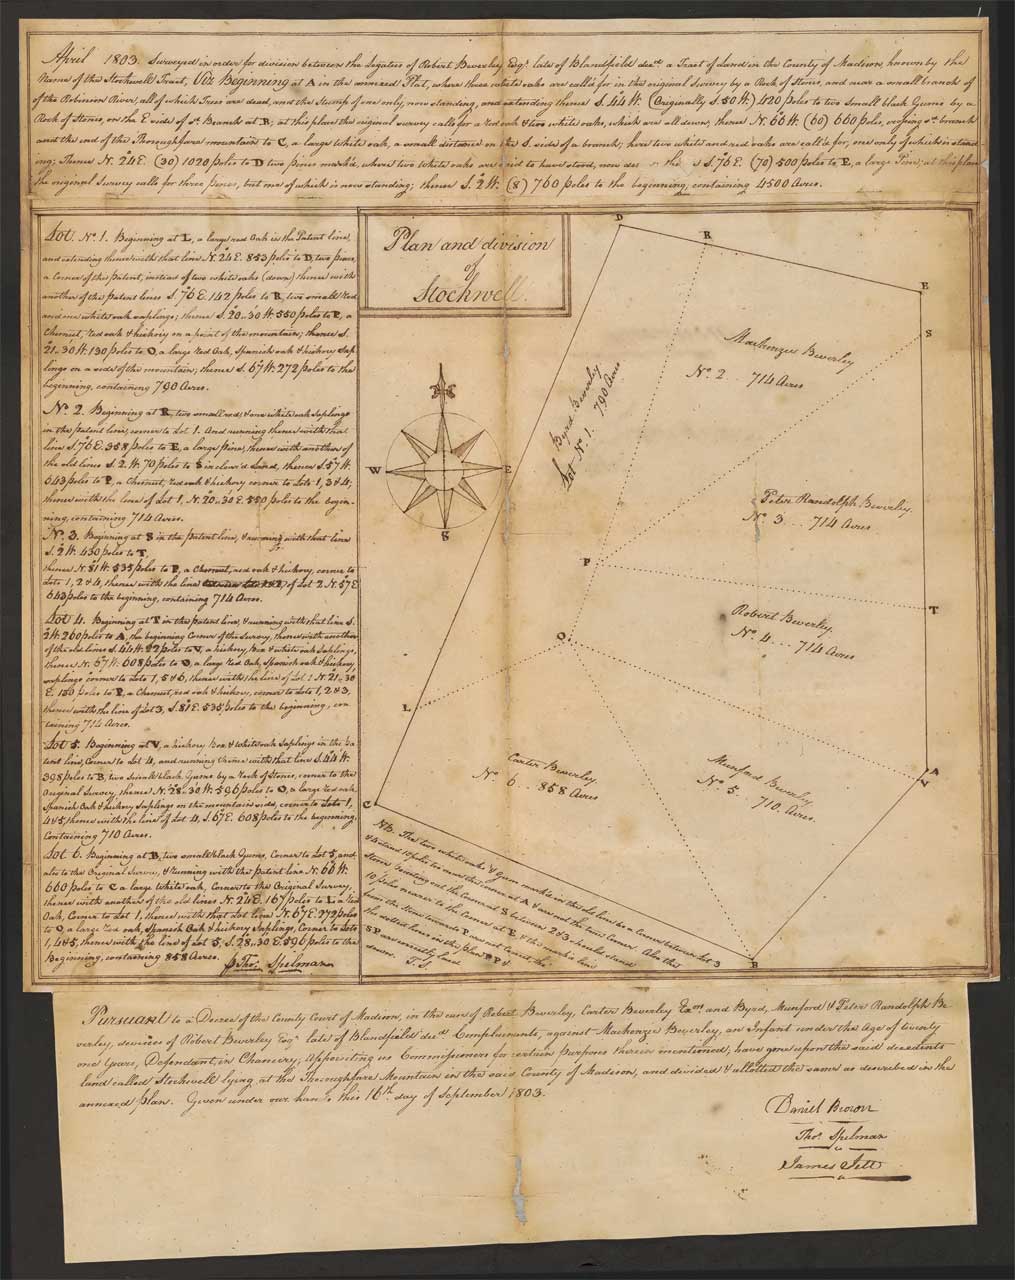 April 1803. Surveyed in order for division between the Legatees of Robert Beverley Esqr. late of Blandfield decd. a Tract of Land in the County of Madison known by the
Name of the Stockwell Tract, Viz Beginning at A in the annexed Plat, where three white oakes are call'd for in the original Survey by a Rock of Stones, and near a small branch of
of the Robinson River, all of which Trees are dead, and the Stump of one only, now standing, and extending thence S. 44 W. (Originally S. 50 W.) 420 poles to two small black Gums by a
Rock of Stones, on the E side of sd. Branch at B; at this place the original survey calls for a red oak & two white oaks, which are all down; thence N. 66 W. (60) 660 poles, crossing sd. branch
and the end of the Thoroughfare mountain to C, a large white oak, a small distance on the S. side of a branch; here two white and red oaks are call'd for, one only of which is stand-
ing; Thence N. 24 E. (30) 1020 poles to D two pines mark'd, where two white oakes are said to have stood, now S. 76 E. (70) 500 poles to E, a large Pine; at this place
the original Survey calls for three pines, but one of which is now standing; thence S. 2 W. (8) 760 poles to the beginning, containing 4500 Acres.
Plan and division
of
Stockwell.
Lot No. 1. Beginning at L, a large red Oak in the Patent line,
and extending thence with that line N. 24 E. 853 poles to D, two pines,
a Corner of the patent, instead of two white oaks (down) thence with
another of the patent lines S. 76 E. 142 poles to R, two small red
and one white oak saplings; thence S. 20..30 W. 550 poles to P, a
Chesnut, red oak & hickory on a point of the mountain; thence S.
21..30 W. 130 poles to O, a large red Oak, Spanish oak & hickory Sap-
lings on a side of the mountain; thence S. 67 W. 272 poles to the
beginning, containing 790 Acres.
No. 2. Beginning at R, two small red & one white oak Saplings
in the patent line, corner to Lot 1. And running thence with that
line S. 76 E. 358 poles to E, a large pine, thence with another of
the old lines S. 2 W. 70 poles to S in clear'd Land, thence S. 57 W.
643 poles to P, a Chesnut, red oak & hickory corner to Lots 1, 3 & 4;
thence with the line of Lot 1, N. 20..30 E. 550 poles to the begin-
ning, containing 714 Acres.
No. 3. Beginning at S in the patent line, & running with that line
S. 2 W. 430 poles to T.
thence N. 81 W. 535 poles to P, a Chesnut, red oak & hickory, corner to
Lots 1, 2 & 4, thence with the line of Lot 2 N. 57 E
643 poles to the beginning, containing 714 Acres.
Lot 4. Beginning at T in the patent line, & running with that line S.
2 W. 260 poles to A, the beginning Corner of the Survey, thence with another
of the old lines S. 44 W. 22 poles to V, a hickory, Box & white oak Saplings,
thence N. 67 W. 608 poles to O, a large red Oak, Spanish oak & hickory
saplings corner to Lots 1, 5 & 6, thence with the line of Lot 1 N. 21..30
E. 130 poles to P, a Chesnut, red oak & hickory, corner to Lots 1, 2 & 3,
thence with the line of Lot 3, S. 81 E. 535 poles to the beginning, con-
taining 714 Acres.
Lot 5. Beginning at V, a hickory Box & White oak Saplings in the pa-
tent line, Corner to Lot 4, and running thence with that line S. 44 W.
398 poles to B, two Small black Gums by a Rock of Stones, corner to the
Original Survey, thence N. 28..30 W. 596 poles to O, a large red oak,
Spanish Oak & hickory Saplings on the mountain side, corner to Lots 1,
4 & 5, thence with the line of Lot 4, S. 67 E. 608 poles to the beginning,
Containing 710 Acres.
Lot 6. Beginning at B, two small black Gums, Corner to Lot 5, and
also to the Original Survey, & running with the patent line N. 66 W.
660 poles to C a large White oak, Corner to the Original Survey,
thence with another of the old lines N. 24 E. 167 poles to L a red
Oak, Corner to Lot 1, thence with that Lot line N. 67 E. 272 poles
to O, a large red oak, Spanish Oak & hickory Saplings, Corner to Lots
1, 4 & 5, thence with the line of Lot 5, S. 28..30 E. 596 poles to the
Beginning, containing 858 Acres.
p Thos. Spelman
D
R
E
S
Mackenzie Beverley
No. 2... 714 Acres
Byrd Beverley
Lot No. 1. 790 Acres
W
E
S
Peter Randolph Beverley.
No. 3... 714 Acres
P
T
Robert Beverley.
No. 4... 714 Acres
O
L
A
V
Carter Beverley.
No. 6.. 858 Acres
Munford Beverley
No. 5.. 710 Acres.
C
B
NB. The two white oaks & Gum mark'd in this old line to be a Corner between Lot 3
& 4 stand 10 poles too near the corner at A & are not the true Corner. Also the
Stone pointing out the Corner at S between 2 & 3 should stand
10 poles nearer to the Corner at E, & the marked line
from the Stone towards P are not correct, the
the dotted lines in this plan
SP are correctly laid
down. T.S
Pursuant to a Decree of the County Court of Madison, in the cause of Robert Beverley, Carter Beverley Exors. and Byrd, Munford & Peter Randolph Be-
verley, devisees of Robert Beverley Esqr. late of Blandfield decd. Complainants, against Mackenzie Beverley, an Infant under the Age of twenty
one Years, Defendant, in Chancery, appointing us Commissioners for certain purposes therein mentioned; have gone upon the said decedents
land called Stockwell lying at the Thoroughfare Mountain in the said County of Madison, and divided & allotted the same as described in the
annexed plan. Given under our hands this 16th. day of September 1803.
Daniel Brown
Thos. Spelman
James Jett